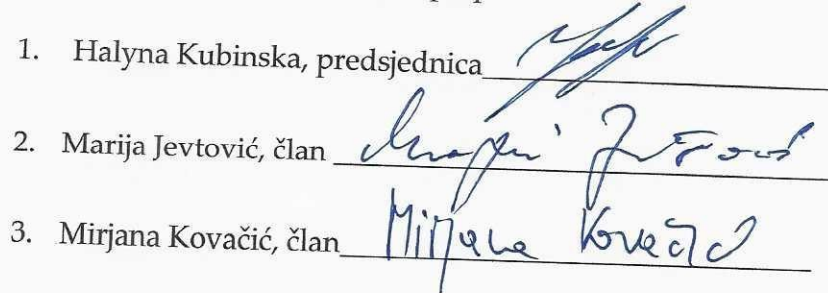 1. Halyna Kubinska, predsjednica
2. Marija Jevtović, član
3. Mirjana Kovačić, član Mirjana Kovačić